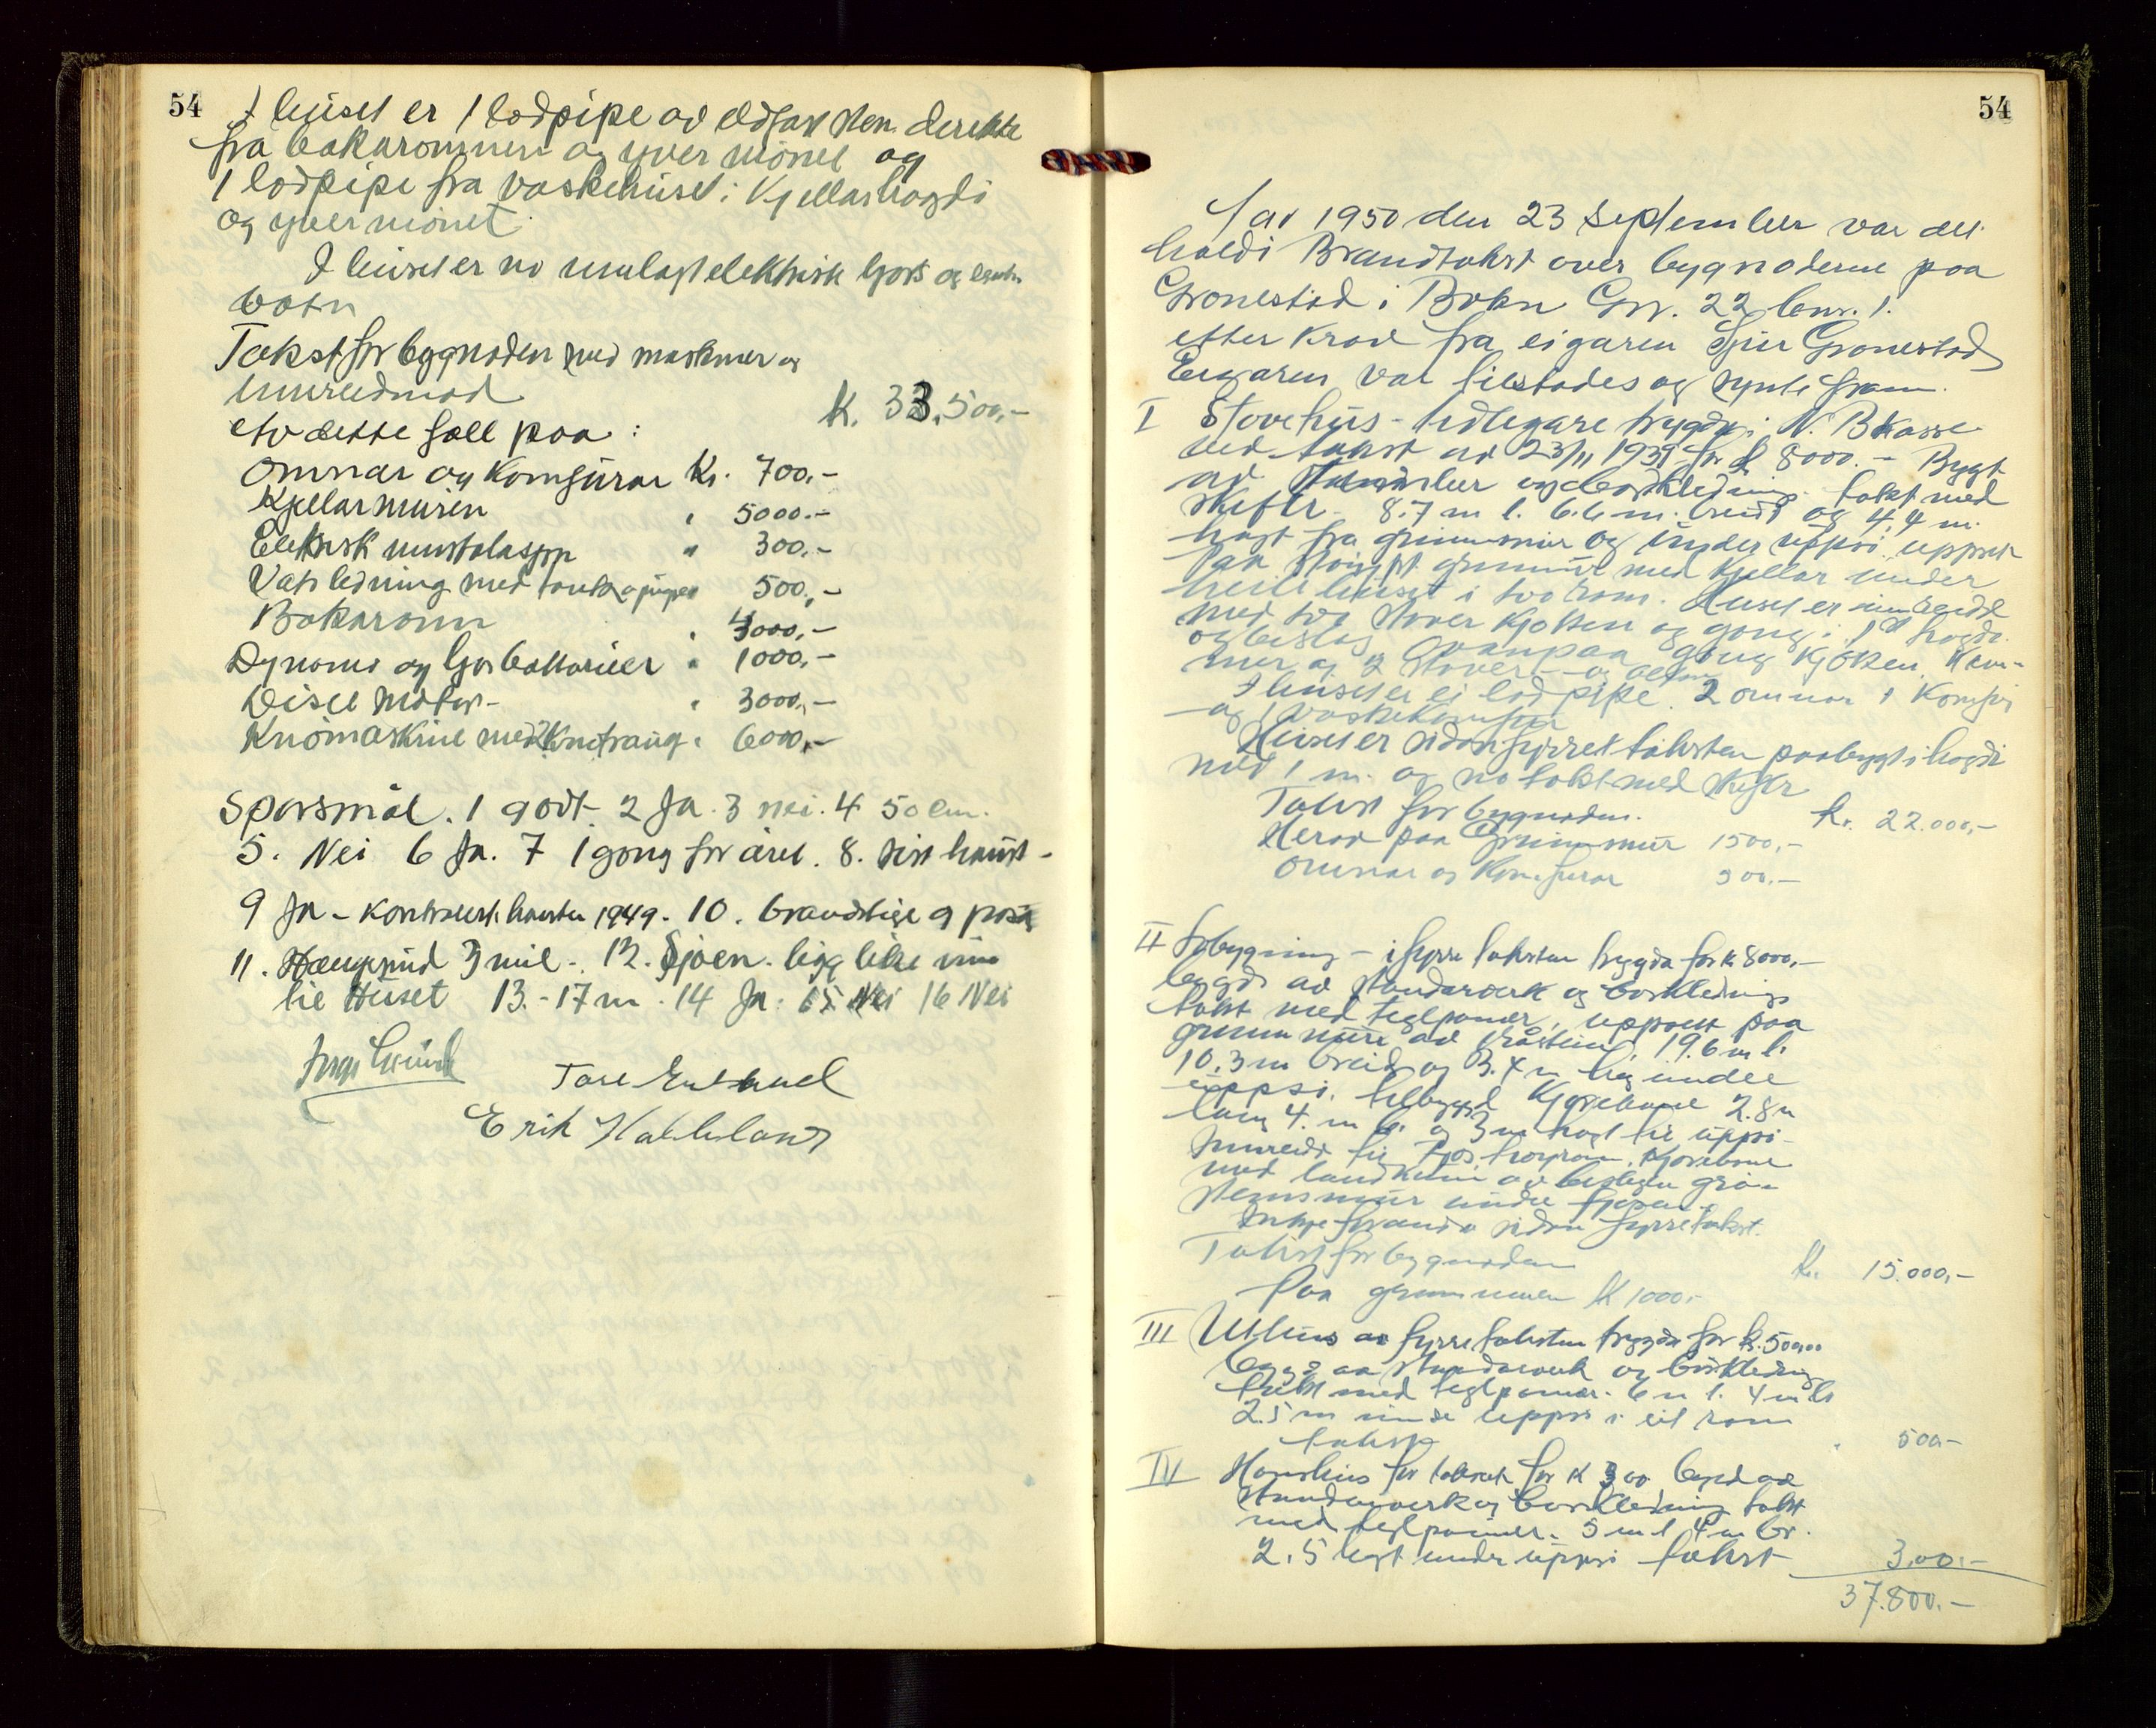 54
I huset er 1 lodpipe av eldfast sten derekte
frå bakaromnen og yver mönet og
1 lodpipe fra vaskehuset i Kjellarhøgdi
og yver mönet.
I huset er no innlagt elektrisk ljos og
vatn
Takst for bygnaden med maskiner og
innreidnad k. 33.500,-
etv dette fell paa:
Omnar og Komfurar Kr. 700,-
Kjellarmuren " 5000.-
Elektrisk instalasjon " 300,-
Vatsledning med tank og 500,-
Bakaromn " 4000,-
Dynamo og ljosbattarier " 1000,-
Disel motor - " 3000,-
Knömaskine med 2 " 6000,-
Sporsmål. 1 godt. 2 Ja. 3 nei. 4 50 cm.
5. Nei 6 Ja. 7 1 gong for året. 8. sist haust -
9 Ja - hausten 1949. 10. brandstige og
11. Haugesund 3 mil -. 12. Sjøen. ligg like inn
til Huset 13. - 17 m. 14 Ja. 15 Nei 16 Nei
Tore
Erik
54
I aar 1950 den 23 september var det
haldi Brandtakst over bygnaderne paa
Gronestad i Bokn Gnr. 22 bnr. 1.
etter krav fra eigaren Sjur Gronestad
Eigaren var tilstades og synte fram.
I Stovehus - tidlegare trygda i N. Bkasse
ved takst av 23/11 1931 for kr 8000. - Bygt
av og bordkledning. takt med
skifer. 8.7 m l. 6.6 m. breidt og 4,4 m.
høgt fra grunnmur og under uppsi. uppsett
paa støypt grunnmur med kjellar under
heile huset i tvo rom. Huset er innreidd
med tvo stover kjøken og gong i 1st høgda.
og beslag. Ovanpaa gong kjøken, kam-
mer og 2 stover - og
I huset er ei lodpipe. 2 omnar 1 komfyr
og 1 vaskekomfyr
Huset er sidan fyrre taksten paabygt i høgdi
med 1 m. og no takt med skifer
Takst for bygnaden. kr. 22.000,-
Herav paa Grunnmur 1500,-
Omnar og Komfurar 900.-
II Løbygning - i fyrre taksten trygda for k 8000,-
bygd av standarverk og bordkledning
takt med teglpanner, uppsett paa
grunnmur av gråstein, 19.6 m l.
10.3 m breid og 3.4 m høg under
uppsi. tilbygd Kjørebane 2.8 m
lang 4. m b. og 3 m høgt til uppsi -
Innreidd til fjos, høyrom, kjorebane
med landkum av
stensmur under fjosen.
Inkje forandra sidan fyrre takst.
Takst for bygnaden kr. 15.000,-
Paa grunnmuren k 1000,-
III Uthus av fyrre taksten trygda for kr. 500,00
bygd av standarverk og bordkledning
takt med teglpanner. 6 m l. 4 m br
2.5 m under uppsi i eit rom
takst " 500,-
IV Hønehus for takst for k 300 bygd av
standarverk og bordkledning takt
med teglpanner. 5 m l 4 m br.
2,5 høgt under uppsi takst 300,-
37.800.-